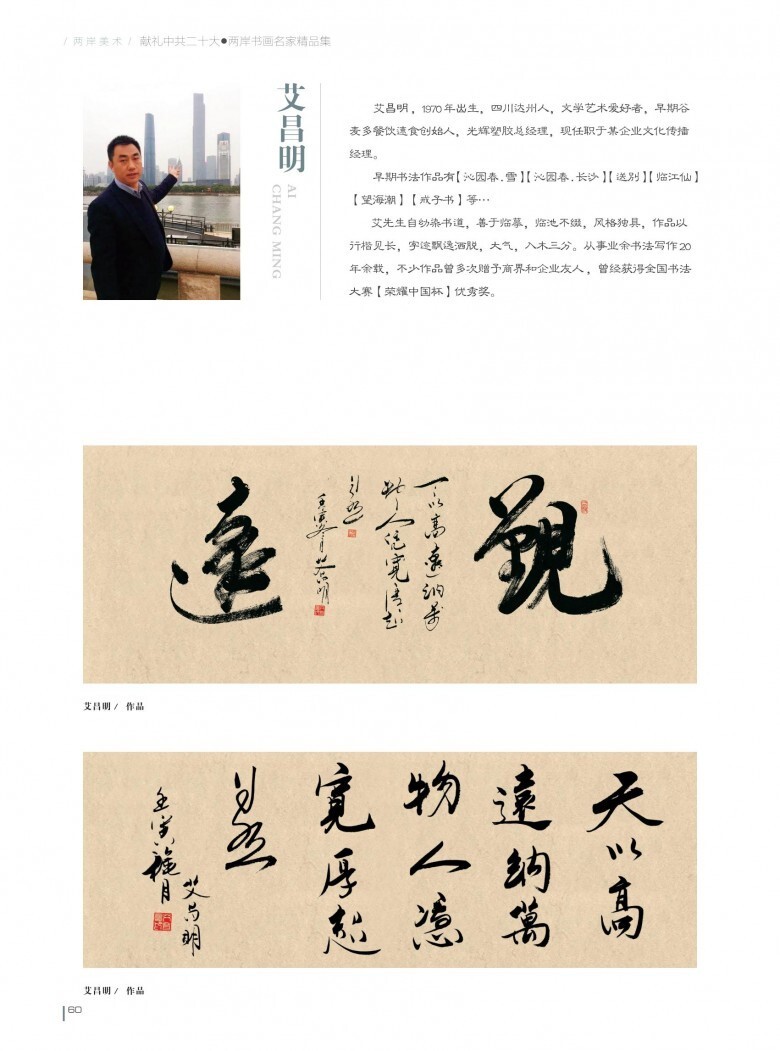 / 两岸美术 / 献礼中共二十大●两岸书画名家精品集
艾昌明
AI
CHANG MING
艾昌明，1970年出生，四川达州人，文学艺术爱好者，早期谷
麦多餐饮速食创始人，光辉塑胶总经理，现任职于某企业文化传播
经理。
早期书法作品有【沁园春.雪】【沁园春.长沙】【送别】【临江仙】
【望海潮】【戒子书】等…
艾先生自幼染书道，善于临摹，临池不缀，风格独具，作品以
行楷见长，字迹飘逸洒脱，大气，入木三分。从事业余书法写作20
年余载，不少作品曾多次赠予商界和企业友人，曾经获得全国书法
大赛【荣耀中国杯】优秀奖。
觀
遠
艾昌明 / 作品
天以高
遠納萬
物人憑
寬厚起
艾昌明
艾昌明 / 作品
60